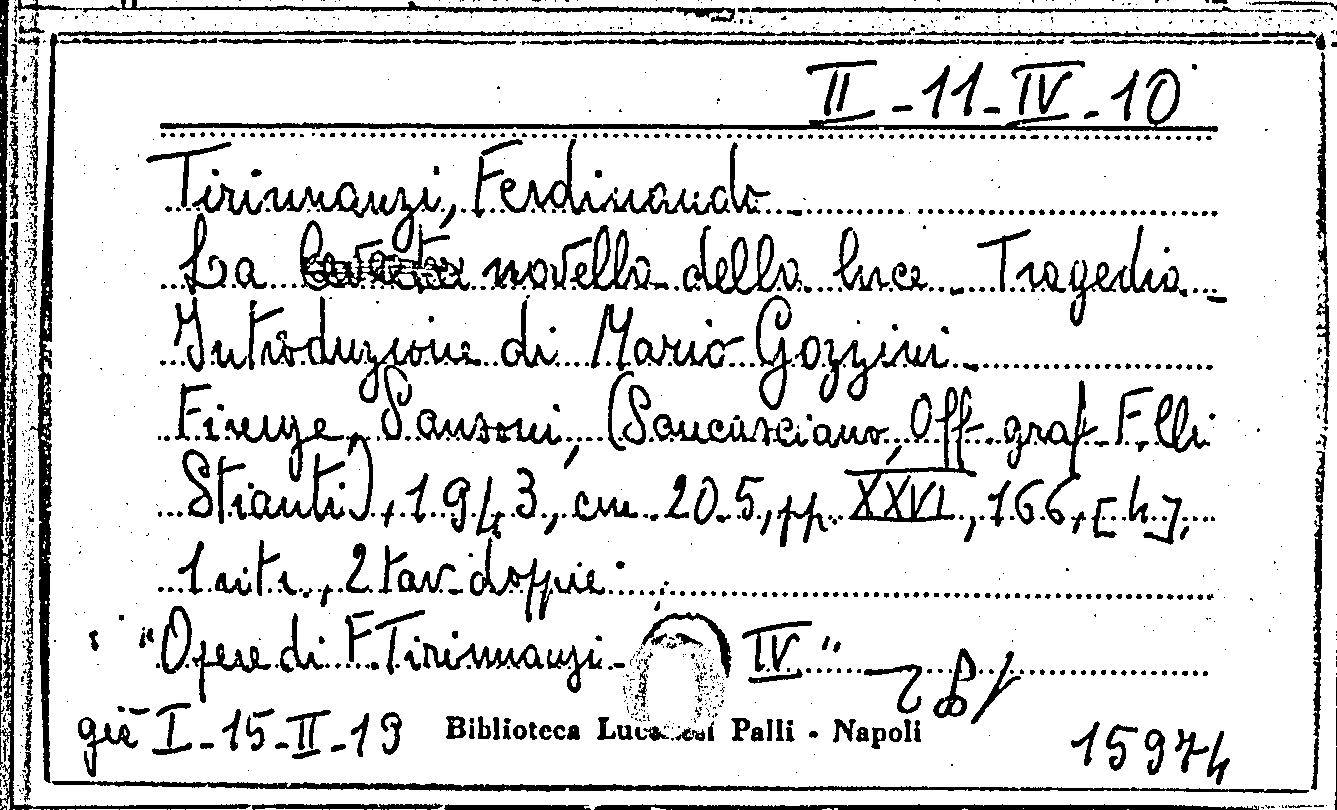 II-11-IV-10
Tirinnanzi, Ferdinando
La novella della luce - Tragedia -
Introduzione di Mario Gozzini -
Firenze, Sansoni, (Sancasciano, Off. graf. F.lli
Stianti), 1943, cm. 20.5, pp. XXVI, 166, [4],
1 ritr., 2 tav. doppie.
"Opere di F. Tirinnanzi - IV"
già I-15-II-19 Biblioteca Lucchesi Palli - Napoli 15974